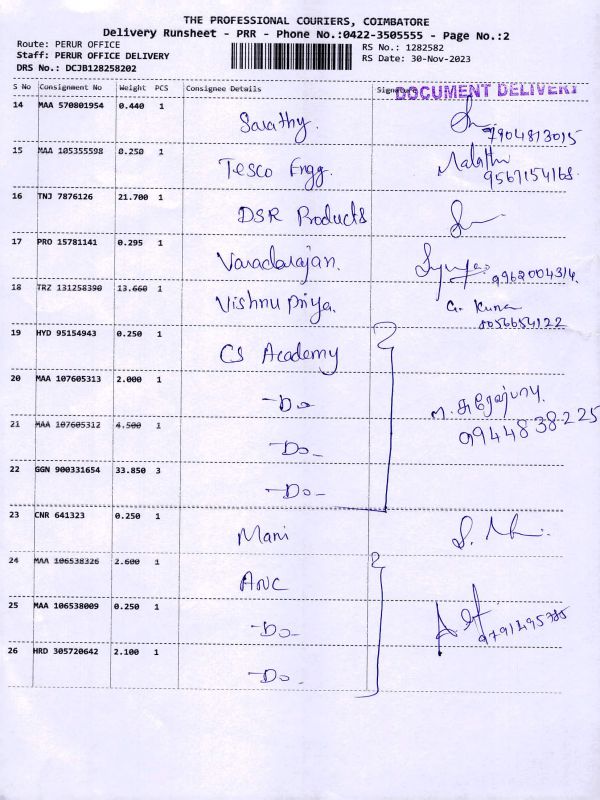 THE PROFESSIONAL COURIERS, COIMBATORE
Delivery Runsheet - PRR - Phone No.:0422-3505555 - Page No.:2
Route: PERUR OFFICE
Staff: PERUR OFFICE DELIVERY
DRS No.: DCJB128258202
RS No.: 1282582
RS Date: 30-Nov-2023
S No Consignment No Weight PCS Consignee Details Signature
DOCUMENT DELIVERY
14 MAA 570801954 0.440 1 Sarathy. 7904813015
15 MAA 105355598 0.250 1 Tesco Engg. Malathi 9567154168.
16 TNJ 7876126 21.700 1 DSR Products
17 PRO 15781141 0.295 1 Varadarajan. 9962004314.
18 TRZ 131258390 13.660 1 Vishnu priya. G. Kuna 8056654122
19 HYD 95154943 0.250 1 CS Academy
20 MAA 107605313 2.000 1 -Do-
21 MAA 107605312 4.500 1 -Do-
9944838225
22 GGN 900331654 33.850 3 -Do-
23 CNR 641323 0.250 1 Mani
24 MAA 106538326 2.600 1 ANC
25 MAA 106538009 0.250 1 -Do- 9791495785
26 HRD 305720642 2.100 1 -Do-